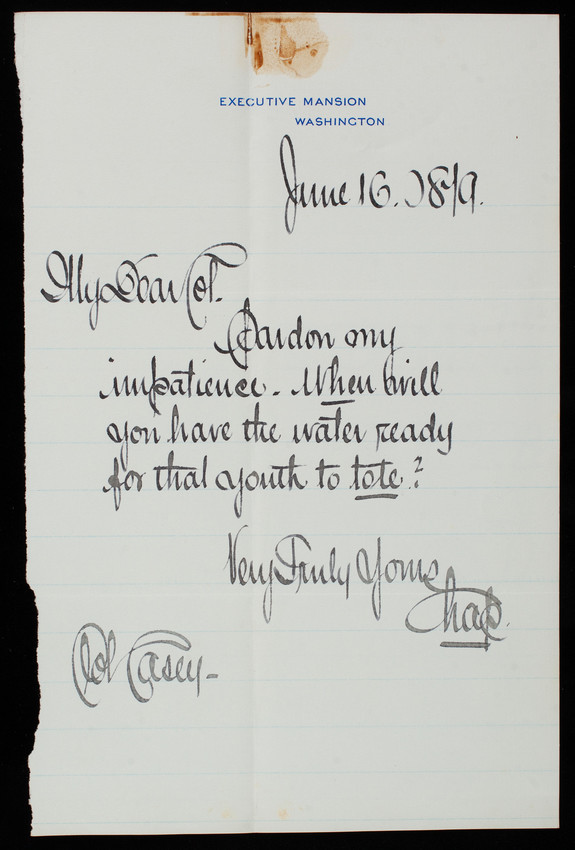 EXECUTIVE MANSION
WASHINGTON
June 16. 1879.
My Dear Col.
Pardon my
impatience. When will
you have the water ready
for that youth to tote?
Very Truly Yours
Chap.
Col Casey-